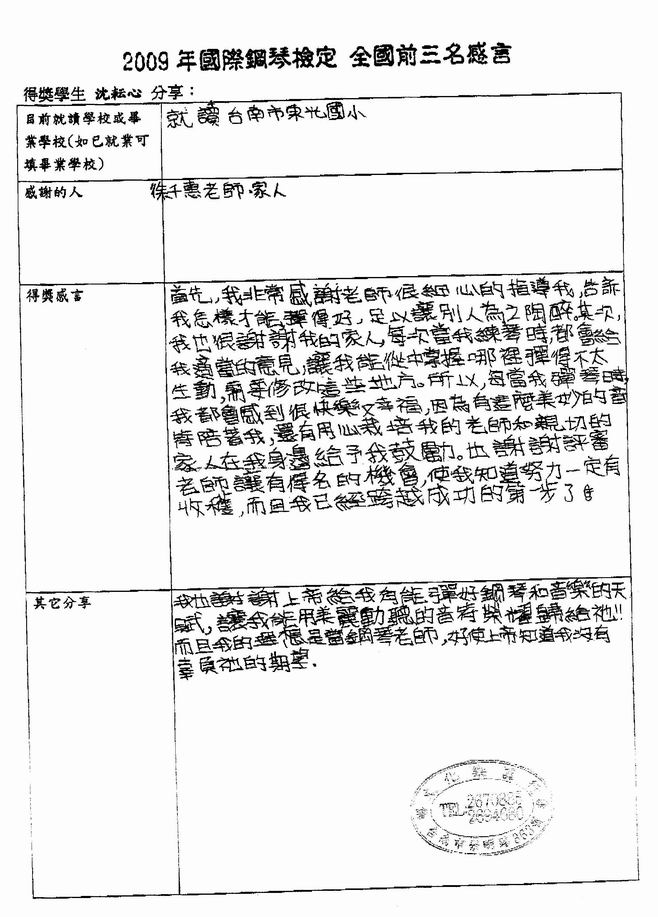 2009 年國際鋼琴檢定 全國前三名感言
得獎學生 沈耘心 分享：
目前就讀學校或畢
業學校(如已就業可
填畢業學校)
就讀台南市東光國小
感謝的人
徐千惠老師.家人
得獎感言
首先,我非常感謝老師很細心的指導我,告訴
我怎樣才能彈得好,足以讓別人為之陶醉。其次,
我也很謝謝我的家人,每次當我練琴時,都會給
我適當的意見,讓我能從中掌握哪裡彈得不太
生動,需要修改這些地方。所以,每當我彈琴時,
我都會感到很快樂又幸福,因為有這麼美妙的音
符陪著我,還有用心栽培我的老師和親切的
家人在我身邊給予我鼓勵。也謝謝評審
老師讓有得名的機會,使我知道努力一定有
收穫,而且我已經跨越成功的第一步了
其它分享
我也謝謝上帝給我有能彈好鋼琴和音樂的天
賦,讓我能用美麗動聽的音符榮耀歸給祂!!
而且我的志願是當鋼琴老師,好使上帝知道我沒有
辜負祂的期望.
文化樂器
TEL:2670885
2694060